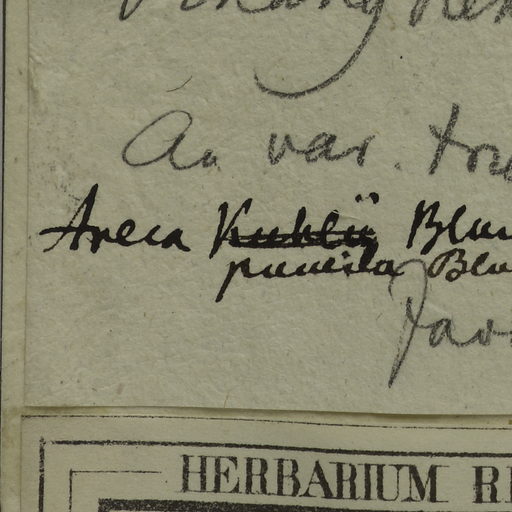 An var. tru
Areca Kuhlii Blu
pumila Blu
Jav
HERBARIUM R